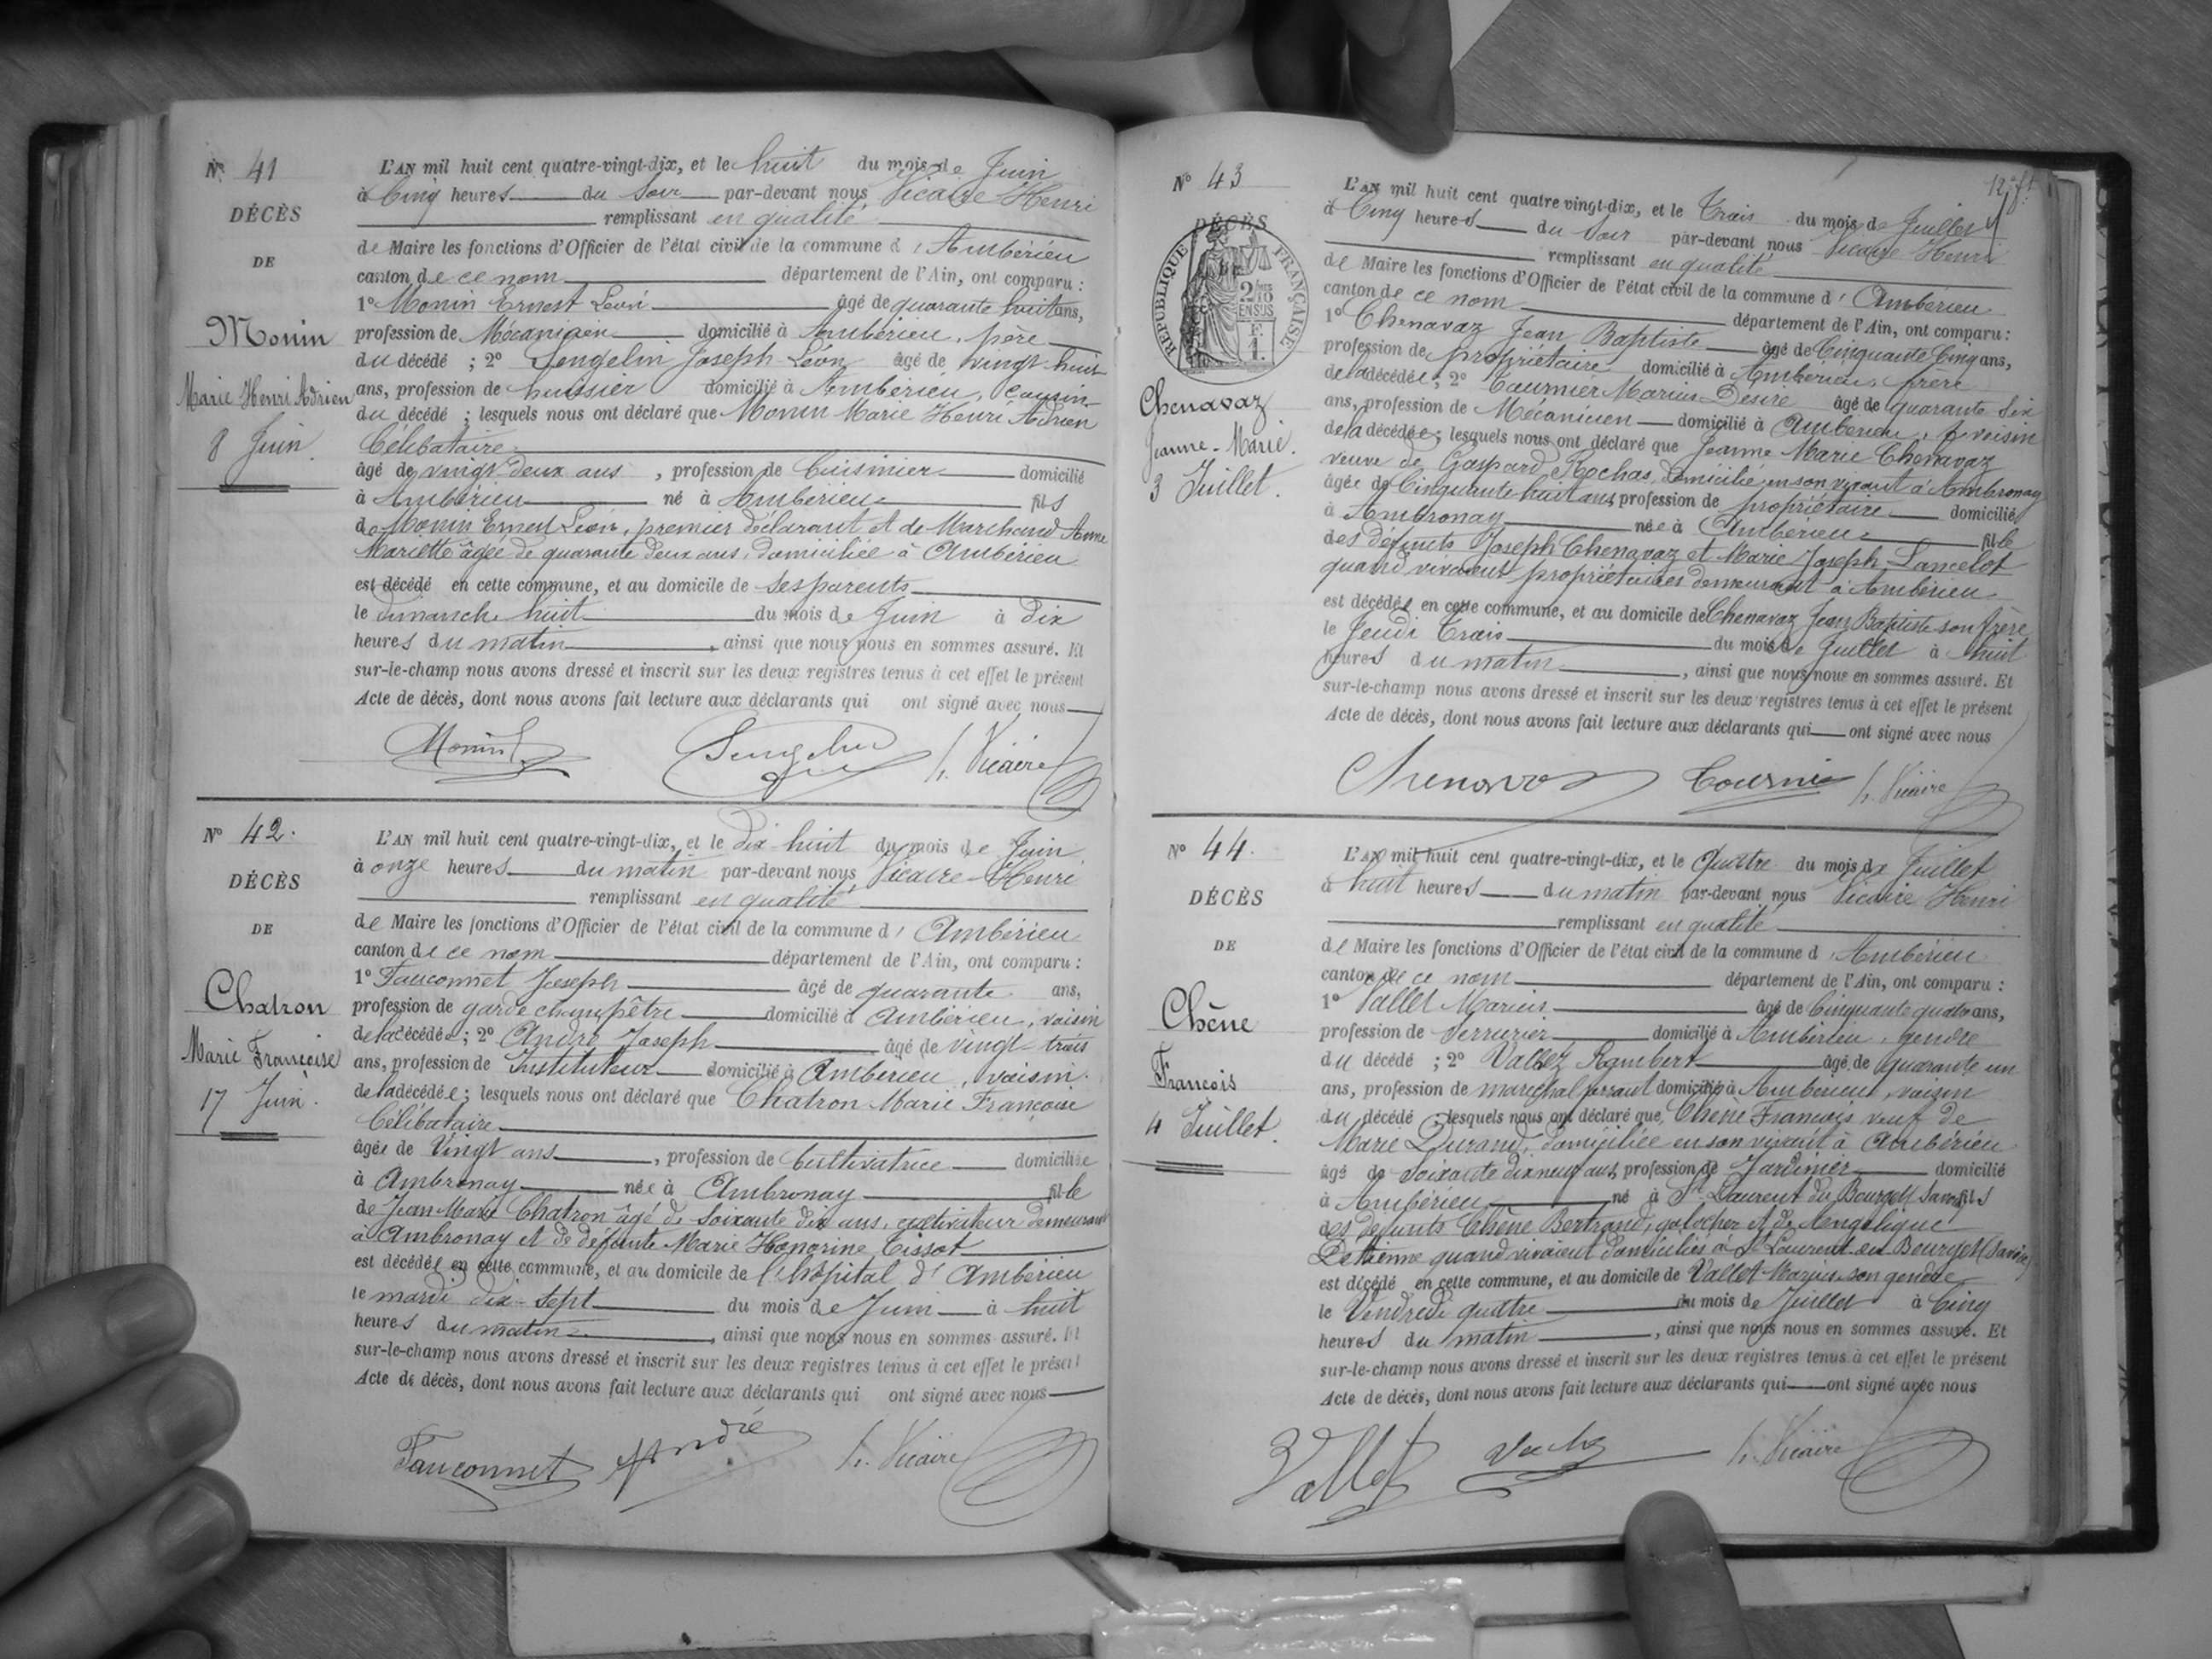 N° 41
DÉCÈS
DE
Monin
Marie Henri Adrien
8 Juin.
L'AN mil huit cent quatre-vingt-dix, et le huit du mois de Juin
à Cinq heures du Soir par-devant nous Vicaire Henri
remplissant en qualité
de Maire les fonctions d'Officier de l'état civil de la commune d' Ambérieu
canton de ce nom département de l'Ain, ont comparu :
1° Monin Ernest Léon âgé de quarante huit ans,
profession de Mécanicien domicilié à Ambérieu, père
du décédé ; 2° Sengelin Joseph Léon âgé de vingt huit
ans, profession de huissier domicilié à Ambérieu, Cousin
du décédé ; lesquels nous ont déclaré que Monin Marie Henri Adrien
Célibataire
âgé de vingt deux ans , profession de Cuisinier domicilié
à Ambérieu né à Ambérieu fils
de Monin Ernest Léon, premier déclarant et de Marchand Anne
Mariette âgée de quarante deux ans, domiciliée à Ambérieu
est décédé en cette commune, et au domicile de ses parents
le dimanche huit du mois de Juin à dix
heures du matin , ainsi que nous nous en sommes assuré. Et
sur-le-champ nous avons dressé et inscrit sur les deux registres tenus à cet effet le présent
Acte de décès, dont nous avons fait lecture aux déclarants qui ont signé avec nous
Monin Sengelin h. Vicaire
N° 42.
DÉCÈS
DE
Chatron
Marie Françoise
17 Juin.
L'AN mil huit cent quatre-vingt-dix, et le dix huit du mois de Juin
à onze heures du matin par-devant nous Vicaire Henri
remplissant en qualité
de Maire les fonctions d'Officier de l'état civil de la commune d' Ambérieu
canton de ce nom département de l'Ain, ont comparu :
1° Fauconnet Joseph âgé de quarante ans,
profession de garde champêtre domicilié à Ambérieu, voisin
de la décédée ; 2° André Joseph âgé de vingt trois
ans, profession de Instituteur domicilié à Ambérieu, voisin.
de la décédée ; lesquels nous ont déclaré que Chatron Marie Françoise
Célibataire
âgée de Vingt ans , profession de Cultivatrice domiciliée
à Ambronay née à Ambronay fille
de Jean Marie Chatron âgé de soixante dix ans, cultivateur demeurant
à Ambronay et de défunte Marie Honorine Tissot
est décédée en cette commune, et au domicile de l'hôpital d' Ambérieu
le mardi dix-sept du mois de Juin à huit
heures du matin , ainsi que nous nous en sommes assuré. Et
sur-le-champ nous avons dressé et inscrit sur les deux registres tenus à cet effet le présent
Acte de décès, dont nous avons fait lecture aux déclarants qui ont signé avec nous
Fauconnet André h. Vicaire
N° 43
DÉCÈS
RÉPUBLIQUE FRANÇAISE
2/10 EN SUS
Chenavaz
Jeanne-Marie.
3 Juillet.
L'AN mil huit cent quatre-vingt-dix, et le Trois du mois de Juillet
à Cinq heures du Soir par-devant nous Vicaire Henri
remplissant en qualité
de Maire les fonctions d'Officier de l'état civil de la commune d' Ambérieu
canton de ce nom département de l'Ain, ont comparu :
1° Chenavaz Jean Baptiste âgé de Cinquante Cinq ans,
profession de propriétaire domicilié à Ambérieu, frère
de la décédée ; 2° Tournier Marius Désiré âgé de quarante six
ans, profession de Mécanicien domicilié à Ambérieu, voisin
de la décédée ; lesquels nous ont déclaré que Jeanne Marie Chenavaz
veuve de Gaspard Rochas, domicilié en son vivant à Ambronay
âgée de Cinquante huit ans, profession de propriétaire domiciliée
à Ambronay née à Ambérieu fille
des défunts Joseph Chenavaz et Marie Joseph Lancelot
quand vivaient propriétaires demeurant à Ambérieu
est décédée en cette commune, et au domicile de Chenavaz Jean Baptiste son frère
le Jeudi Trois du mois de Juillet à huit
heures du matin , ainsi que nous nous en sommes assuré. Et
sur-le-champ nous avons dressé et inscrit sur les deux registres tenus à cet effet le présent
Acte de décès, dont nous avons fait lecture aux déclarants qui ont signé avec nous
Chenavaz Tournie h. Vicaire
N° 44.
DÉCÈS
DE
Chêne
François
4 Juillet.
L'AN mil huit cent quatre-vingt-dix, et le Quatre du mois de Juillet
à huit heures du matin par-devant nous Vicaire Henri
remplissant en qualité
de Maire les fonctions d'Officier de l'état civil de la commune d' Ambérieu
canton de ce nom département de l'Ain, ont comparu :
1° Vallet Marius âgé de Cinquante quatre ans,
profession de Serrurier domicilié à Ambérieu, gendre
du décédé ; 2° Vallez Rambert âgé de quarante un
ans, profession de maréchal ferrant domicilié à Ambérieu, voisin
du décédé ; lesquels nous ont déclaré que Chêne François veuf de
Marie Durand, domiciliée en son vivant à Ambérieu
âgé de soixante dix neuf ans, profession de Jardinier domicilié
à Ambérieu né à St Laurent du Bourget Savoie fils
des défunts Chêne Bertrand, galocher et de Angélique
quand vivaient domiciliés à St Laurent du Bourget (Savoie)
est décédé en cette commune, et au domicile de Vallet Marius son gendre
le Vendredi quatre du mois de Juillet à Cinq
heures du matin , ainsi que nous nous en sommes assuré. Et
sur-le-champ nous avons dressé et inscrit sur les deux registres tenus à cet effet le présent
Acte de décès, dont nous avons fait lecture aux déclarants qui ont signé avec nous
Vallet h. Vicaire